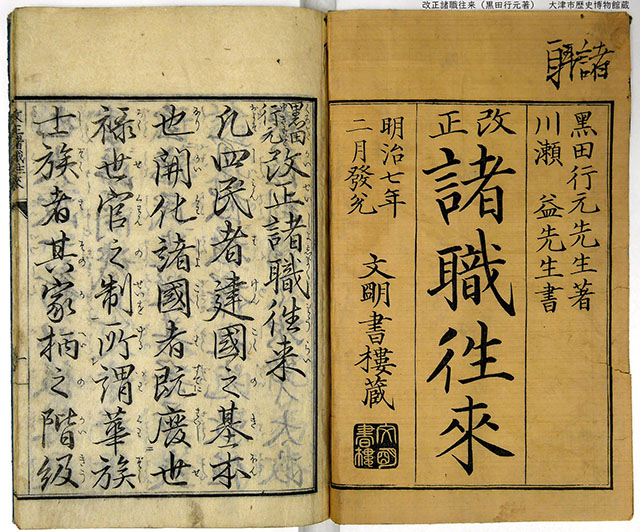 改正諸職往来（黒田行元著）　大津市歴史博物館蔵
諸職
黒田行元先生著
川瀬　益先生書
改正
諸職往來
明治七年
二月發兌
文明書樓蔵
文明
書樓
黒田
行元
改正諸職往来
凡四民者建國之基本
也開化諸國者既廢世
禄世官之制所謂華族
士族者其家柄之階級
改正諸職往来